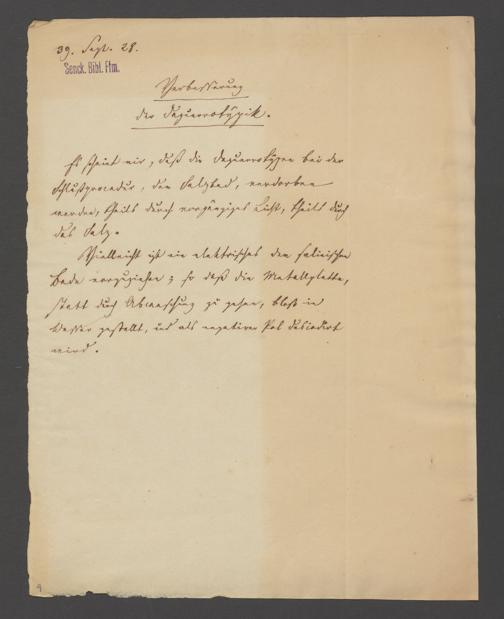 39. Sept. 28.
Senck. Bibl. Ffm.
Verbesserung
der Daguerrotÿpik.
Es scheint mir, daß die Daguerrotÿpen bei der
Schlußprocedur, dem Salzbad, verdorben
werden, theils durch vorgängiges Licht, theils durch
das Salz.
Vielleicht ist ein elektrisches dem salinischen
Bade vorzuziehen; so daß die Metallplatte,
statt durch Abwaschung zu gehen, bloß in
Wasser gestellt, und als negativer Pol desiodirt
wird.